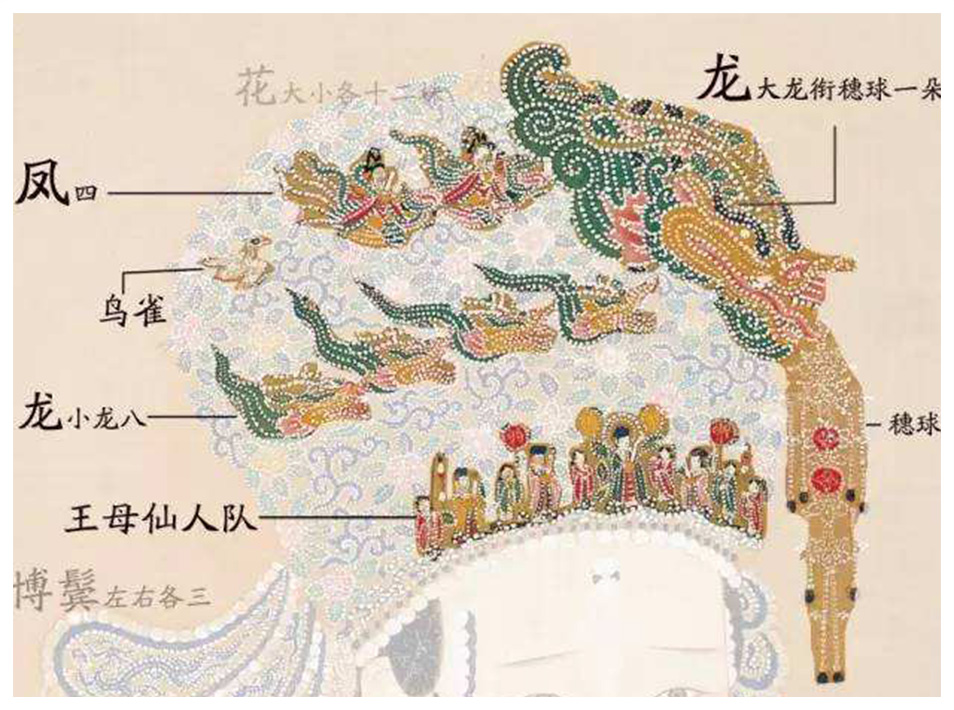 花大小各十二株
龙大龙衔穗球一朵
凤四
鸟雀
龙小龙八
穗球
王母仙人队
博鬓左右各三